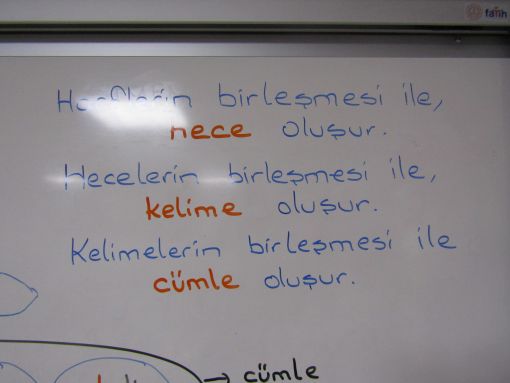 fatih
Harflerin birleşmesi ile,
hece oluşur.
Hecelerin birleşmesi ile,
kelime oluşur.
Kelimelerin birleşmesi ile
cümle oluşur.
→ cümle